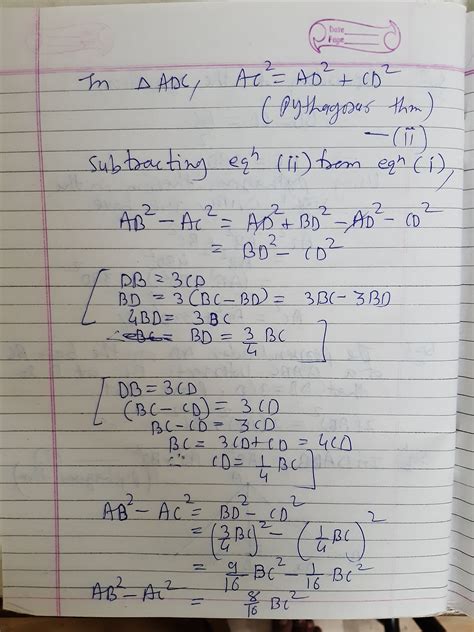 Date
Page
In △ ADC, AC² = AD² + CD²
(Pythagorus thm)
—(ii)
Subtracting eqⁿ (ii) from eqⁿ (i),
AB² – AC² = AD² + BD² – AD² – CD²
= BD² – CD²
DB = 3CD
BD = 3(BC – BD) = 3BC – 3BD
4BD = 3BC
BC = BD = 3/4 BC
DB = 3CD
(BC – CD) = 3CD
BC – CD = 3CD
BC = 3CD + CD = 4CD
∴ CD = 1/4 BC
AB² – AC² = BD² – CD²
= (3/4 BC)² – (1/4 BC)²
= 9/16 BC² – 1/16 BC²
AB² – AC² = 8/16 BC²